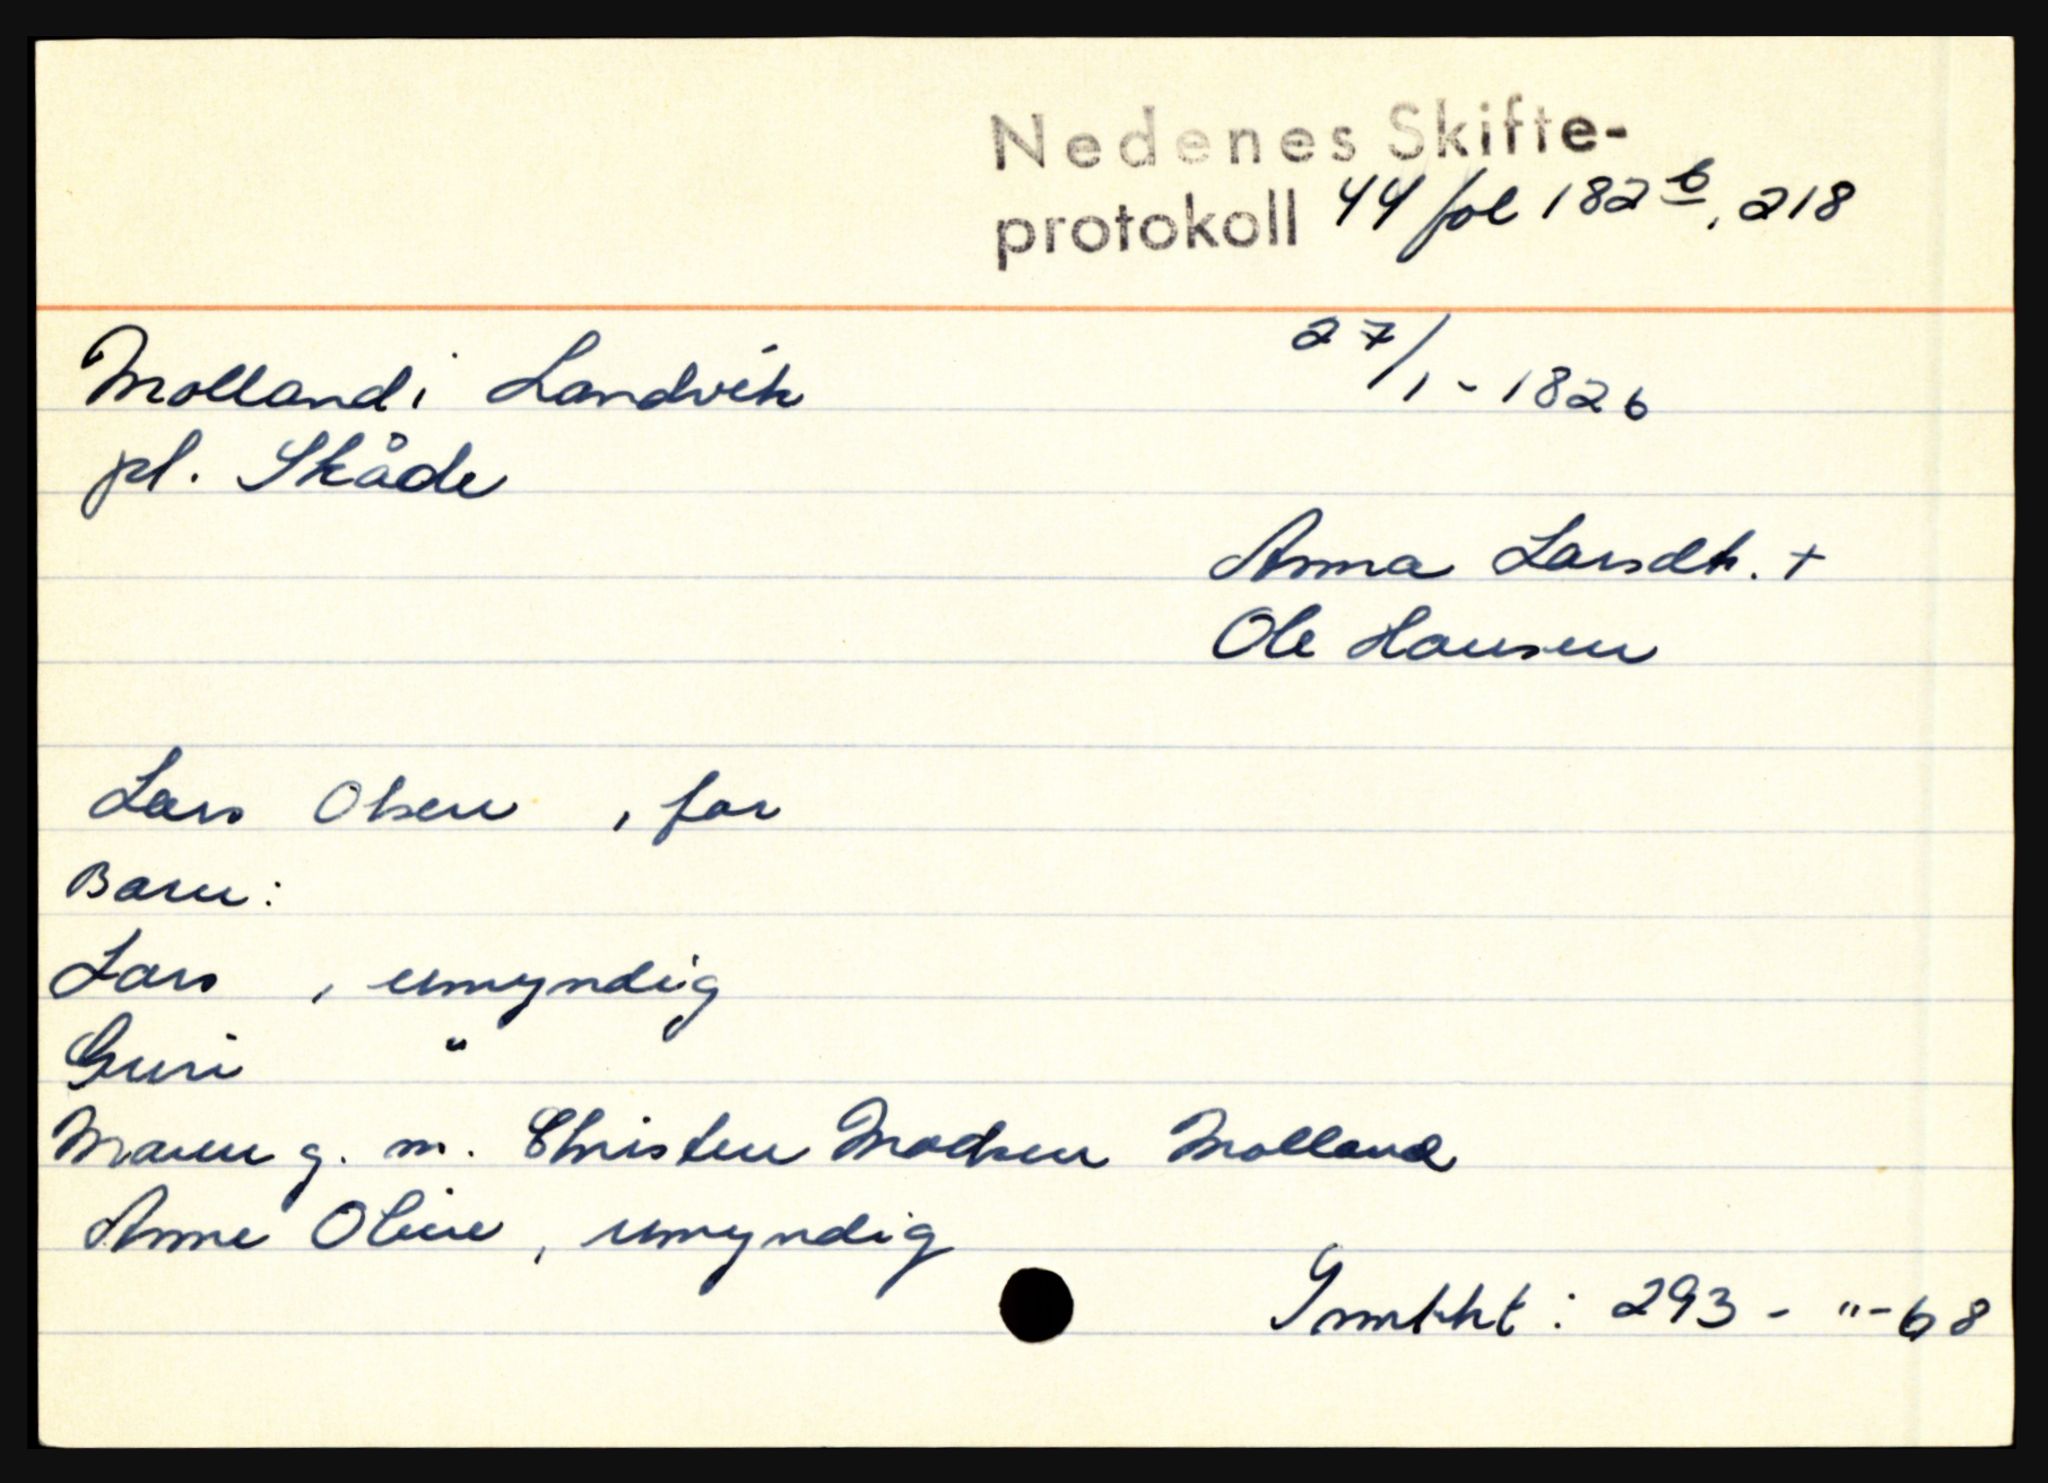 Nedenes Skifte-
protokoll 44 fol 182 b, 218
Molland i Landvik
27/1 - 1826
pl. Skåde
Anna Larsdt. +
Ole Hansen
Lars Olsen , far
Barn:
Lars , umyndig
Guri "
Maren g. m. Christen Madsen Molland
Anne Oline , umyndig
: 293 - " - 68